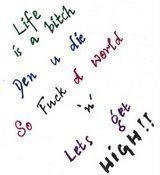 Life
is a bitch
Den u die
So Fuck d world
'n'
Lets get
HIGH!!